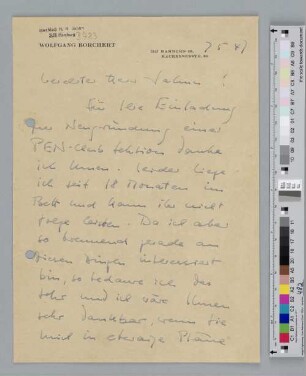 WOLFGANG BORCHERT
7.5.47
Verehrter Herr Jahnn!
Für Ihre Einladung
zur Neugründung einer
PEN-Club Sektion danke
ich Ihnen. Leider liege
ich seit 18 Monaten im
Bett und kann ihr nicht
Folge leisten. Da ich aber
so brennend gerade an
diesen Dingen interessiert
bin, so bedaure ich das
sehr und ich wäre Ihnen
sehr dankbar, wenn Sie
mich in etwaige Pläne